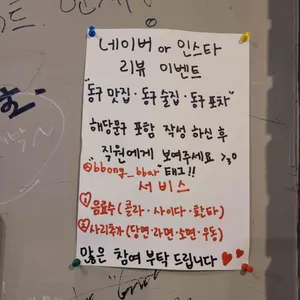 네이버 or 인스타
리뷰 이벤트
"동구 맛집·동구 술집·동구 포차"
해당문구 포함 작성 하신 후
직원에게 보여주세요 >3o
@bbong_bbar" 태그!!
서비스
① 음료수 (콜라·사이다·환타)
② 사리추가 (당면·라면·소면·우동)
많은 참여 부탁 드립니다 ♥♥